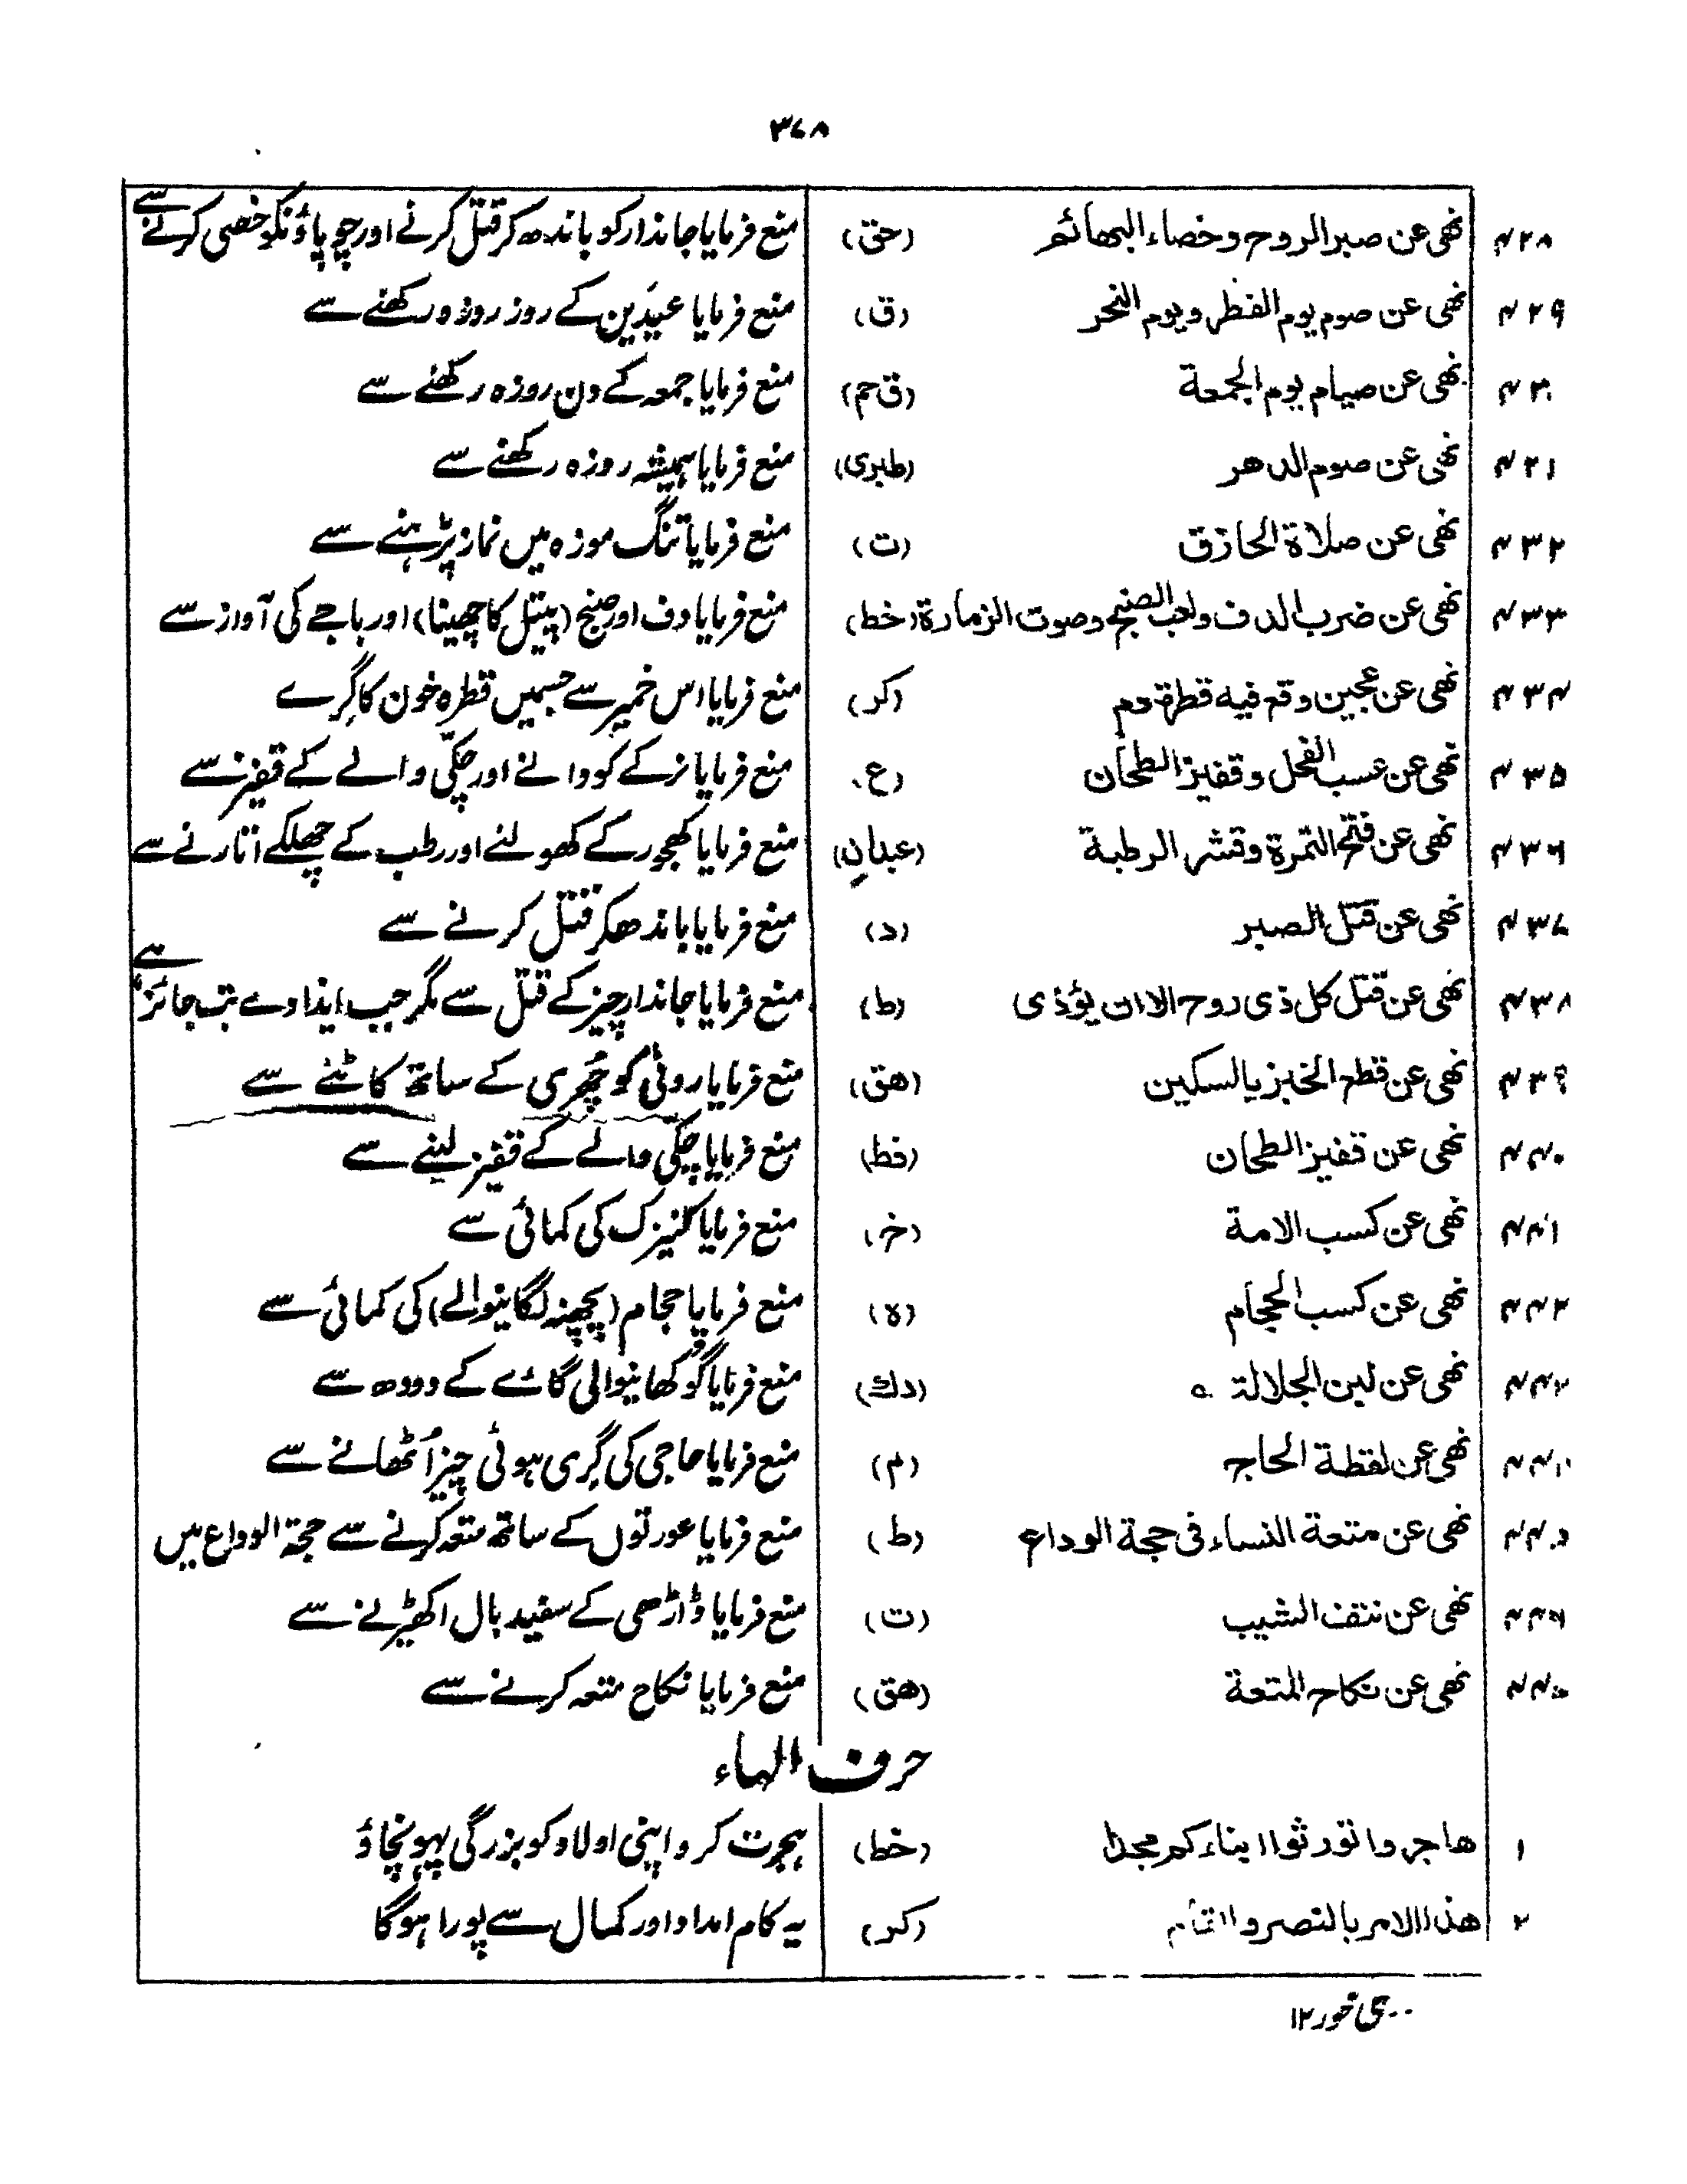 ۳۷۸
۴۲۸ نهی عن صبر الروح وخصاء البهائم (حق) منع فرمایا جاندار کو باندھ کر قتل کرنے اور چوپاؤنکو خصی کرنے سے
۴۲۹ نهی عن صوم یوم الفطر ویوم النحر (ق) منع فرمایا عیدَین کے روز روزہ رکھنے سے
۴۳۰ نهی عن صیام یوم الجمعة (ق حم) منع فرمایا جمعہ کے دن روزہ رکھنے سے
۴۳۱ نهی عن صوم الدهر (طبری) منع فرمایا ہمیشہ روزہ رکھنے سے
۴۳۲ نهی عن صلاة الحازق (ت) منع فرمایا تنگ موزہ میں نماز پڑہنے سے
۴۳۳ نهی عن ضرب الدف ولعب الصنج وصوت الزمارة (خط) منع فرمایا دف اور صنج (پیتل کا چھینا) اور باجے کی آواز سے
۴۳۴ نهی عن عجین وقع فیه قطرة دم (کر) منع فرمایا اس خمیر سے جسمیں قطرہ خون کا گرے
۴۳۵ نهی عن عسب الفحل وقفیز الطحان (ع) منع فرمایا نر کے کودوانے اور چکّی والے کے قفیز سے
۴۳۶ نهی عن فتح التمرة وقشر الرطبة (عبدان) منع فرمایا کھجور کے کھولنے اور رطب کے چھلکے اتارنے سے
۴۳۷ نهی عن قتل الصبر (د) منع فرمایا باندھکر قتل کرنے سے
۴۳۸ نهی عن قتل کل ذی روح الا ان یؤذی (ط) منع فرمایا جاندار چیز کے قتل سے مگر جب ایذا دے تب جائز ہے
۴۳۹ نهی عن قطع الخبز بالسکین (هق) منع فرمایا روٹی کو چُھری کے ساتھ کاٹنے سے
۴۴۰ نهی عن قفیز الطحان (قط) منع فرمایا چکّی والے کے قفیز لینے سے
۴۴۱ نهی عن کسب الامة (خ) منع فرمایا کنیزک کی کمائی سے
۴۴۲ نهی عن کسب الحجام (ہ) منع فرمایا حجام (پچھنہ لگانیوالے) کی کمائی سے
۴۴۳ نهی عن لبن الجلالة (دك) منع فرمایا گو کھانیوالی گائے کے دودھ سے
۴۴۴ نهی عن لقطة الحاج (م) منع فرمایا حاجی کی گری ہوئی چیز اُٹھانے سے
۴۴۵ نهی عن متعة النساء فی حجة الوداع (ط) منع فرمایا عورتوں کے ساتھ متعہ کرنے سے حجۃ الوداع میں
۴۴۶ نهی عن نتف الشیب (ت) منع فرمایا ڈاڑھی کے سفید بال اکھیڑنے سے
۴۴۷ نهی عن نکاح المتعة (هق) منع فرمایا نکاح متعہ کرنے سے
حرف الہاء
۱ هاجروا تورثوا ابناءکم مجدا (خط) ہجرت کرو اپنی اولاد کو بزرگی پہونچاؤ
۲ هذا الامر بالنصر و (کر) یہ کام امداد اور کمال سے پورا ہوگا
خور ۱۲